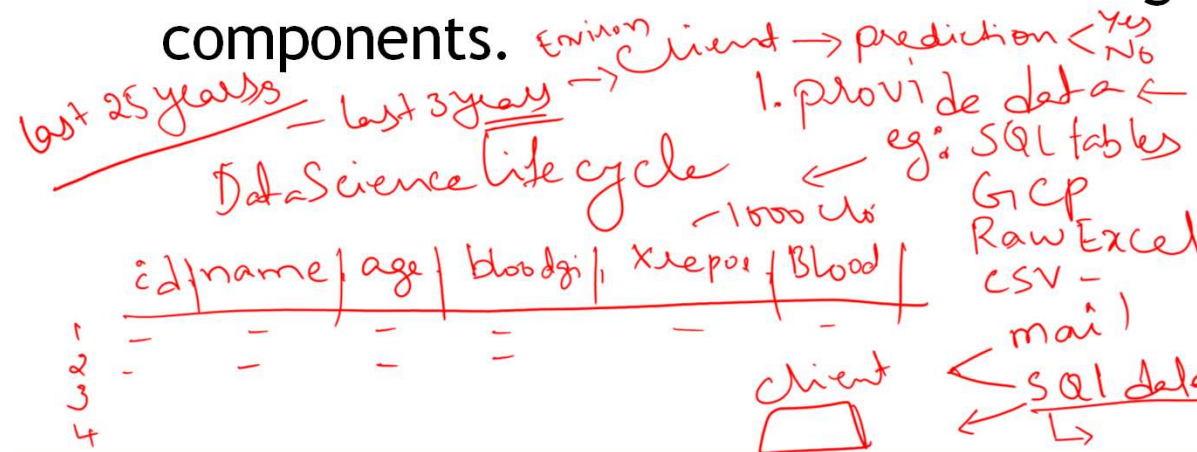 components.
Environ
Client → prediction < Yes No
last 25 years – last 3 years →
1. provide data ←
Data Science Life cycle ← eg: SQL tables
GCP
Raw Excel
CSV –
id | name | age | | | Blood |
1
2
3
4
mail
client
SQL